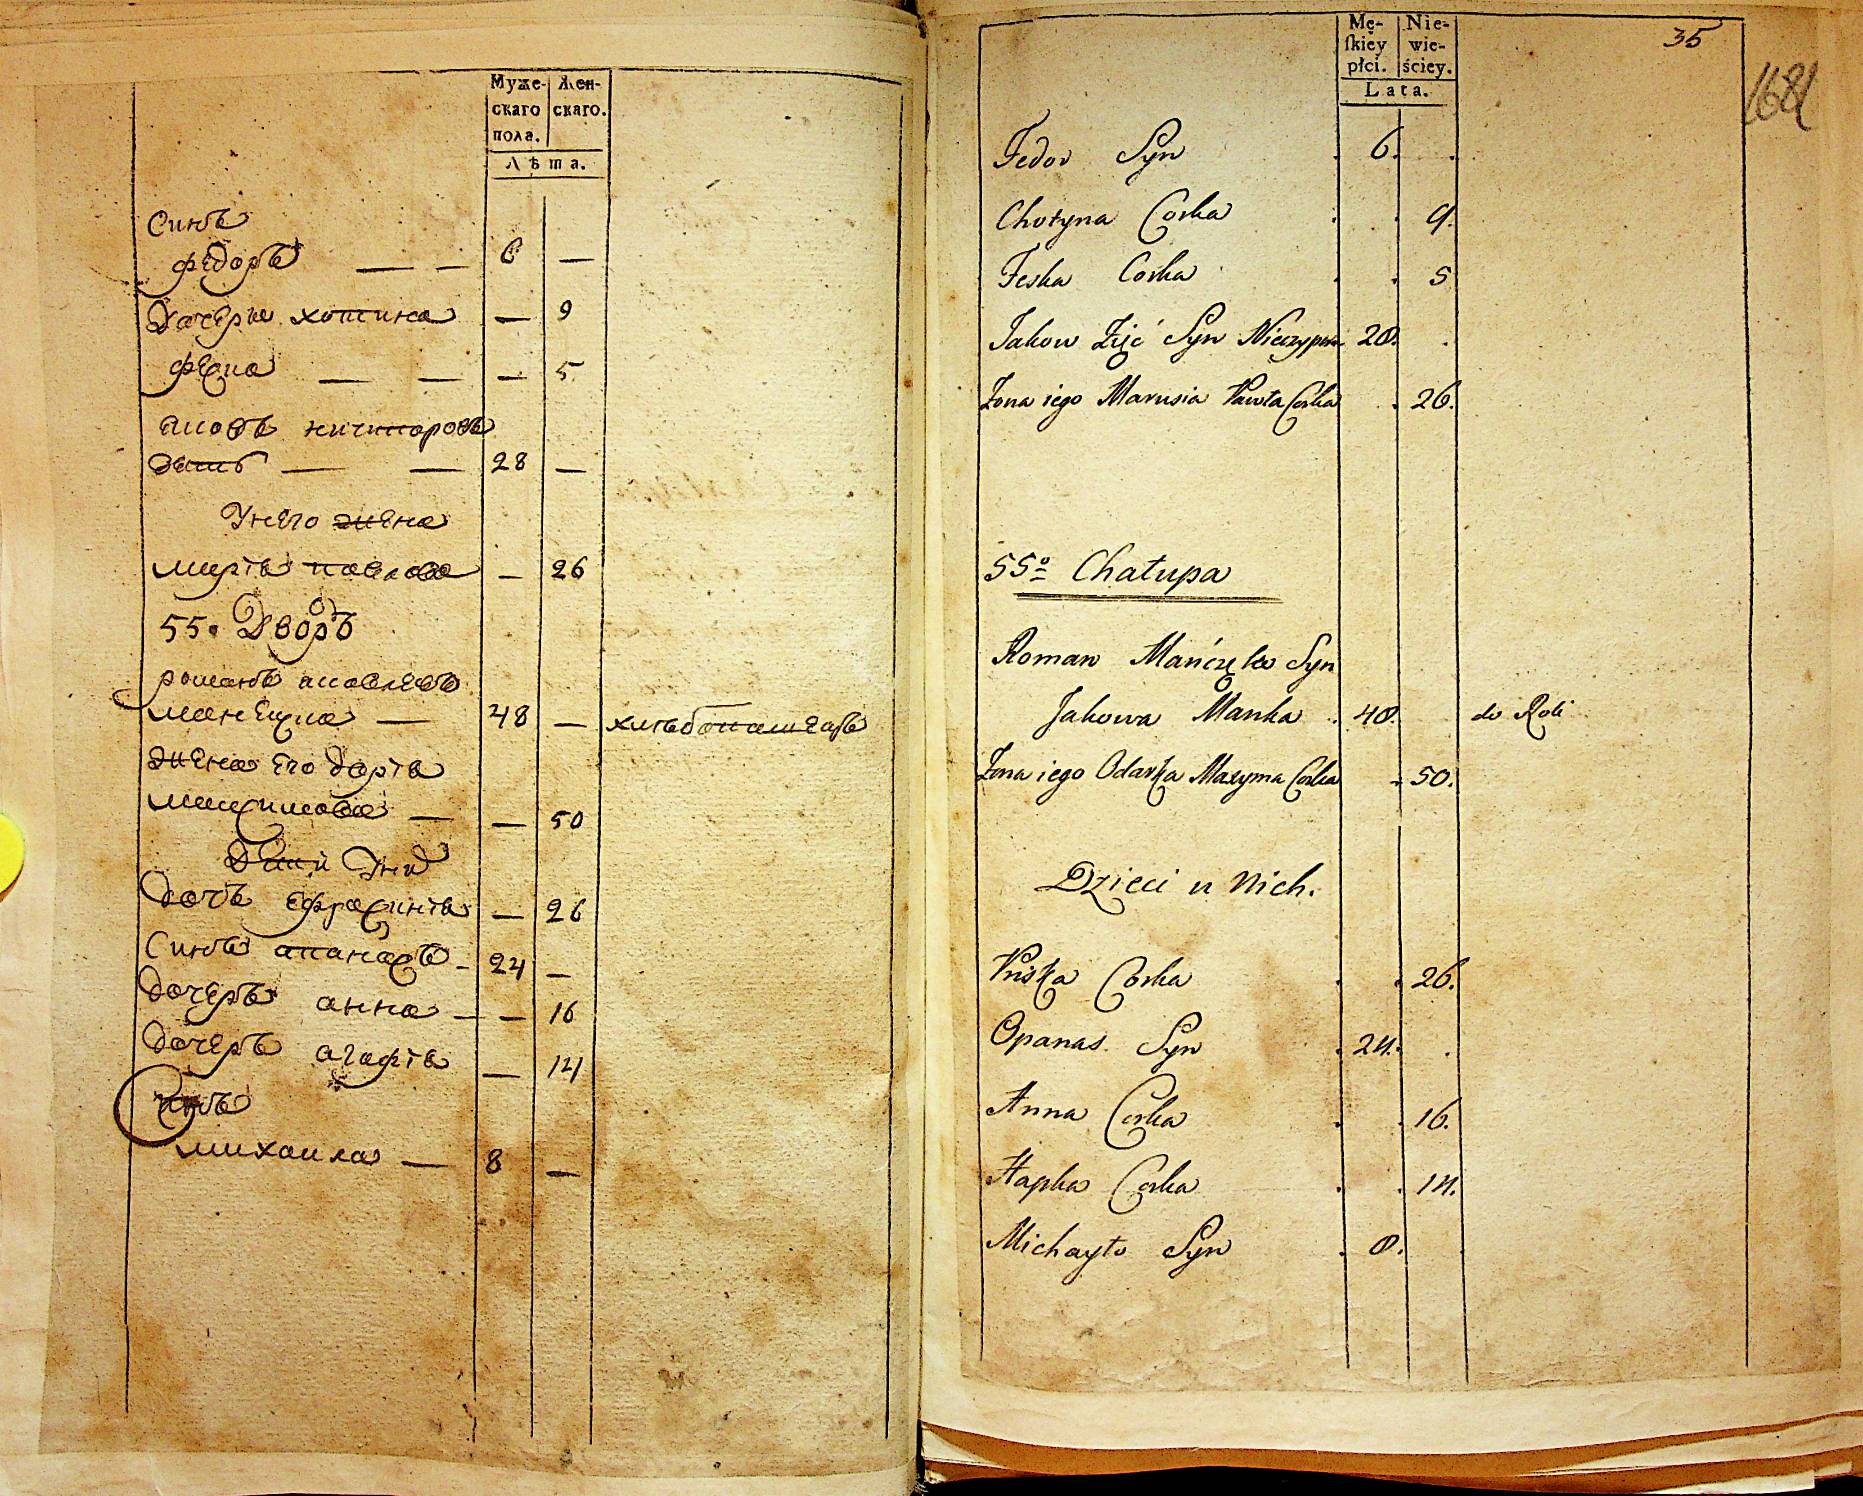 Муже-
скаго
пола.
Жен-
скаго.
Лѣта.
Синъ
Федоръ — — 6 —
Дочери хотина — 9
Феска — — — 5
яковъ ничипоровъ
зять — — 28 —
Унего жена
марія павлова — 26
55. Дворъ
романъ яковлевъ
манечка — 48 — хлѣбопашецъ
жена его дарія
максимова — — 50
Дѣти Унихъ
дочь ефросинія — 26
Синъ апанасъ - 24 —
дочеръ анна — — 16
дочеръ агафія — 14
Синъ
михаила — 8 —
Mę-
skiey
płci.
Nie-
wie-
ściey.
Lata.
35
1681
Fedor Syn . 6. .
Chotyna Corka . . 9.
Feska Corka . . 5
Jakow Zięć Syn Nieczypora 28. .
Zona iego Marusia Pawła Corka . 26.
55o Chałupa
Roman Mańczęko Syn
Jakowa Manka . 48. do Roli
Zona iego Odarka Maxyma Corka . 50.
Dzieci u Nich.
Priska Corka . . 26.
Opanas Syn . 24. .
Anna Corka . . 16.
Hapka Corka . . 14.
Michayło Syn . 8.